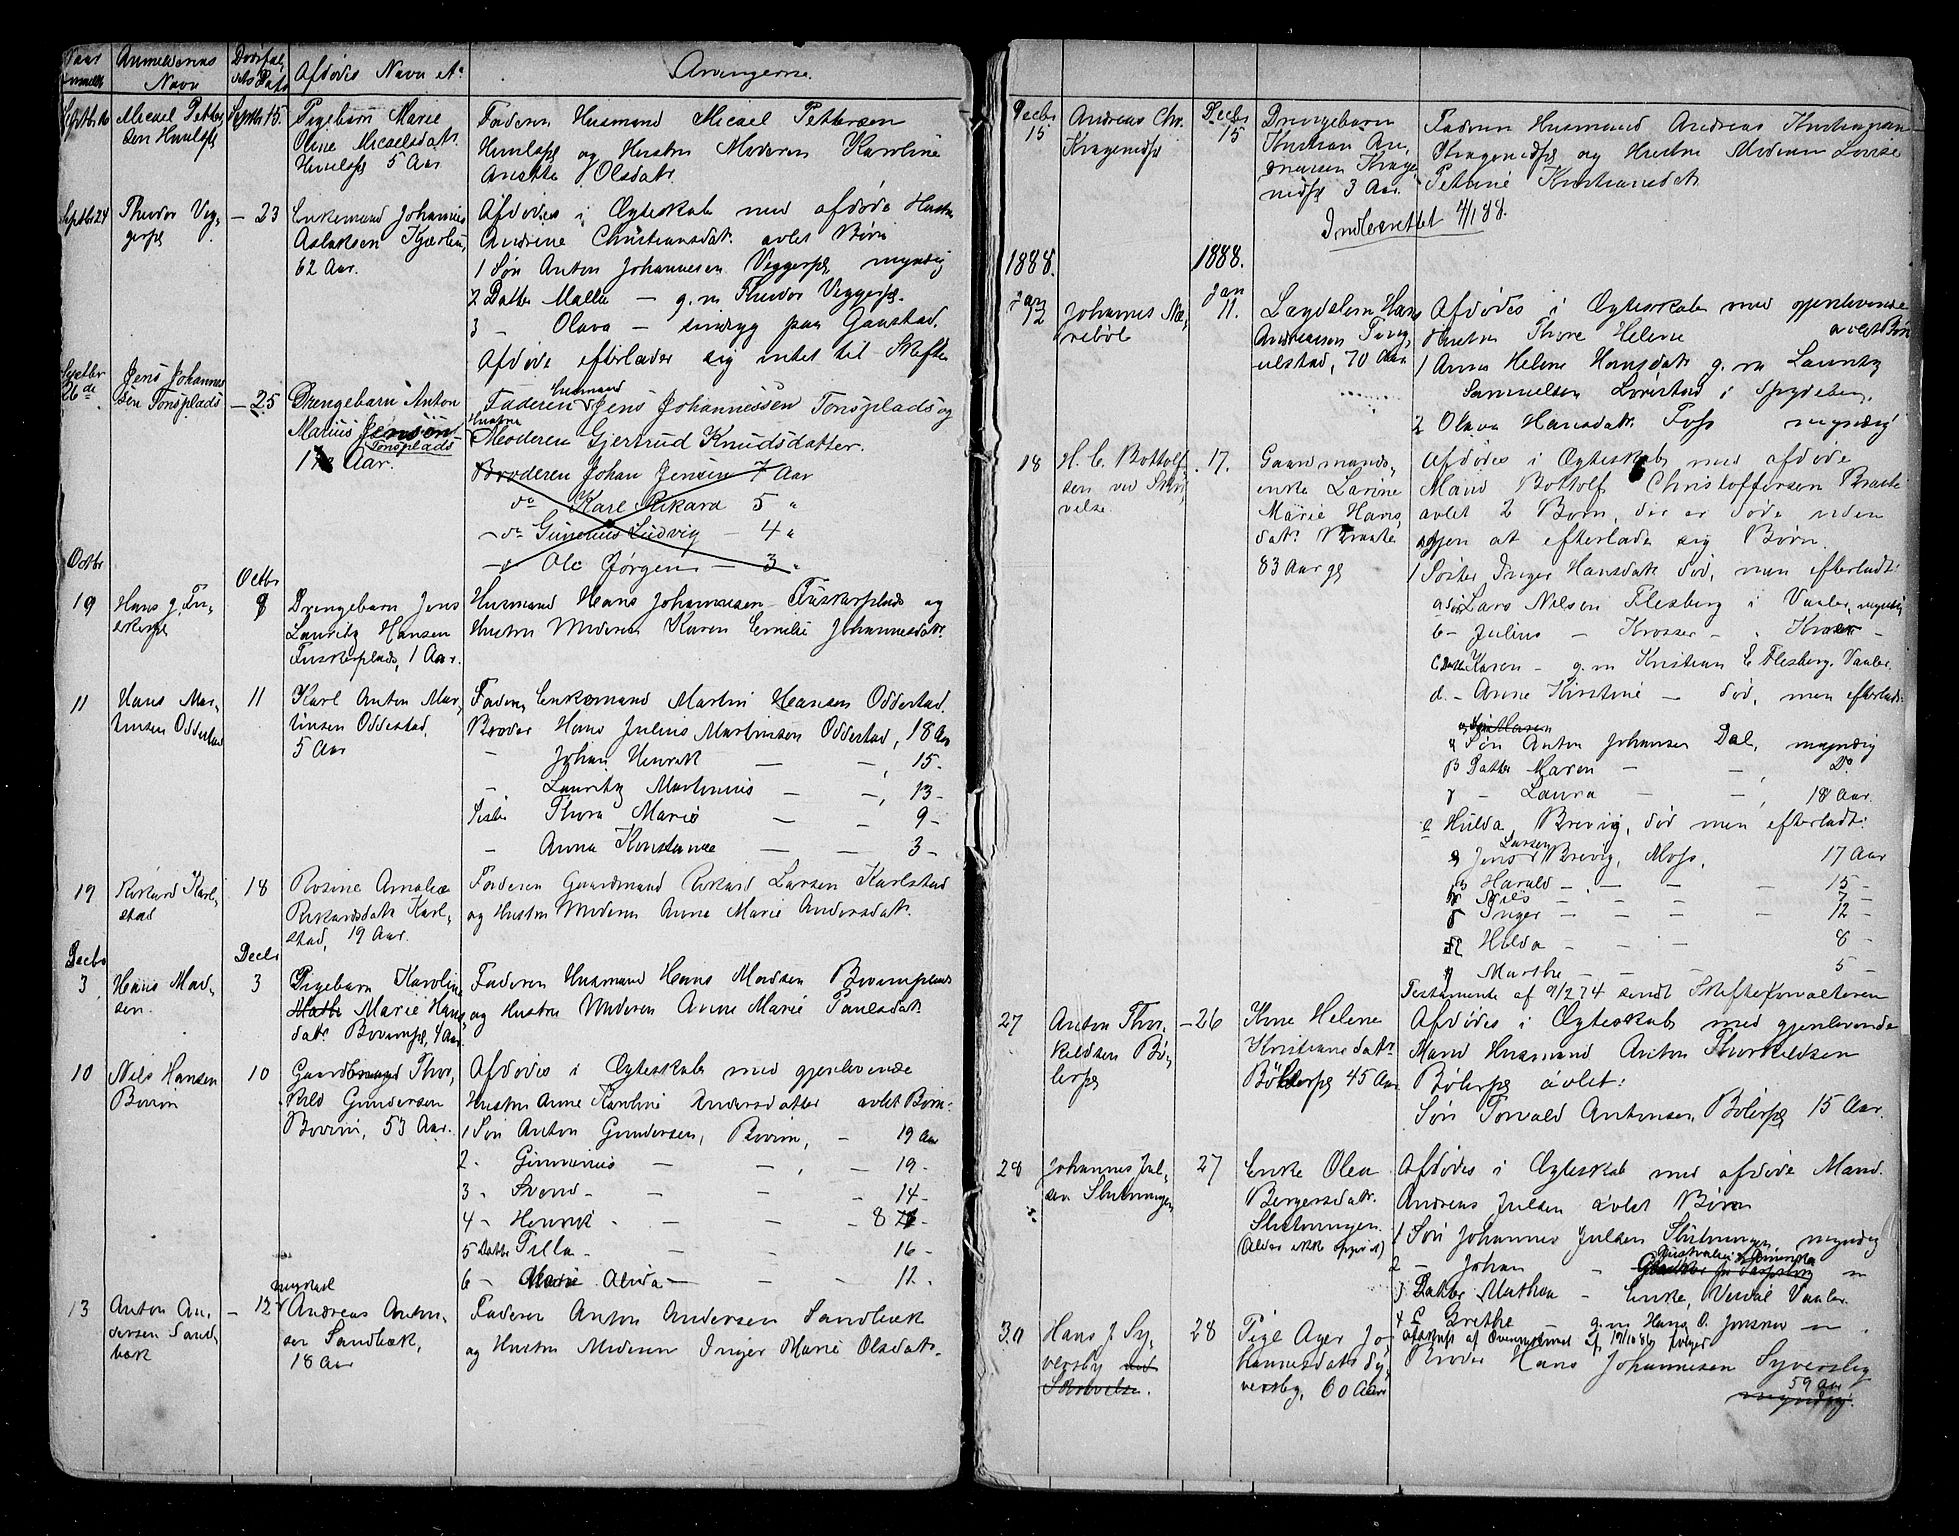 Naar anmeldt
Anmelderens Navn
Dødsfaldets Dato
Afdødes Navn etc
Arvingerne.
Septbr 16
Micael Petter-
sen Hvulsps
Septbr 15.
Pigebarn Marie
Oline Micaelsdatr
5 Aar
Faderen Husmand Micael Pettersen
og Hustru Moderen Karoline
Anette Olsdatr
Septbr 24
Theodor Veg-
gersps
— 23
Enkemand Johannes
Aslaksen
62 Aar.
Afdødes i Egteskab med afdøde Hustru
Andrine Christiansdatr avlet Børn
1 Søn Anton Johannesen Veggersps, myndig
2 Datter Malla — g. m Theodor Veggersps.
3 — Olava — paa Gaustad.
Afdøde efterlader sig intet til Skifte
Septbr
26de
Jens Johannes
sen Tonsplads
— 25
Drengebarn Anton
Marius Jensen
Tonsplads
1 Aar.
Husmand
Faderen Jens Johannessen Tonsplads og
Hustru
Moderen Gjertrud Knudsdatter.
Broderen Johan Jensen 7 Aar
do Karl Rikard 5 "
— do Gunerius Ludvig — 4 "
— do Ole Jørgen — 3 "
Octbr
Octbr
19
Hans J. Tu-
skerps
8
Drengebarn Jens
Lauritz Hansen
Tuskerplads, 1 Aar.
Husmand Hans Johannesen Tuskerplads og
Hustru Moderen Karen Emelie Johannesdatr.
11
Hans Mar-
tinsen Oddestad
11
Karl Anton Mar-
tinsen Oddestad,
5 Aar
Faderen Enkemand Martin Hansen Oddestad.
Broder Hans Julius Martinsen Oddestad, 18 Aar
— Johan Henrik — —, 15 -
— Lauritz Martinius — —, 13 -
Søster Thora Marie — — 9 -
— Anna Konstanse — — 3 -
19
Rikard Karl-
stad
18
Rosine Amalie
Rikardsdatr Karl-
stad, 19 Aar.
Faderen Gaardmand Rikard Larsen Karlstad
og Hustru Moderen Anne Marie Andersdatr.
Decbr
Decbr
3
Hans Mad-
sen.
3
Pigebarn Karoline
Mathi Marie Hans-
datr Bovimps, 4 Aar.
Faderen Husmand Hans Madsen Bovimplads
og Hustru Moderen Anne Marie Paulsdatr
10
Nils Hansen
Bovim
10
Gaardmand Thor-
kild Gundersen
Bovim, 53 Aar.
Afdødes i Egteskab med gjenlevende
Hustru Anne Karoline Andersdatter avlet Børn:
1 Søn Anton Gundersen, Bovim, — 19 Aar
2 - Gunnerius — —, — 19 -
3 - Svend — — — 14 -
4 - Henrik - — — — 8 -
5 Datter Tilla — — — 16 -
6 - Marie Alvida — — — 12 -
13
Anton An-
dersen Sand-
bæk
— 12
ungkarl
Andreas Anton-
sen Sandbæk,
18 Aar
Faderen Anton Andersen Sandbæk
og Hustru Moderen Inger Marie Olsdatr.
Decbr
15
Andreas Chr.
Kragenedps
Decbr
15
Drengebarn
Kristian An-
dreasen Krage-
nedps 3 Aar.
Faderen Husmand Andreas Kristiansen
Kragenedps og Hustru Moderen Lovise
Petrine Kristiansdatr
Indberettet 4/1 88.
1888.
1888.
Jan
12
Johannes Næ-
rebøl
Jan
11.
Lægdslem Hans
Andreasen Ting-
ulstad, 70 Aar
Afdødes i Egteskab med gjenlevende
Hustru Thore Helene avlet Børn
1 Anne Helene Hansdatr g. m Lauritz
Samuelsen Løvestad i Spydeberg.
2 Olava Hansdatr Foss myndig
18
H. C. Bottolf-
sen ved Skri-
velse
17.
Gaardmands-
enke Larine
Marie Hans-
datr Braate
83 Aar gl
Afdødes i Egteskab med afdøde
Mand Bottolf Christoffersen Braate
avlet 2 Børn, der er døde uden
igjen at efterlade sig Børn.
1 Søster Inger Hansdatr død, men efterladt:
a Søn Lars Nilsen Flesberg i Vaaler, myndig
b — Julius — Krosser — " Kraaker —
c Datter Karen — g. m Kristian E Flesberg, Vaaler
d. — Anne Kirstine — død, men efterladt:
α Søn Anton Johansen Dal, myndig
β Datter Maren — —, Do
γ — Laura — —, 18 Aar.
e Hulda Brevig, død men efterladt:
Larsen
α Jens Brevig, Moss, 17 Aar
β Harald — — — — 15 -
γ Nils — — — 7 -
δ Inger — — — — 12 -
Hilda — — — 8 -
η Marthe — — — 5 -
Testamente af 9/2 74 sendt Skifteforvalteren
27
Anton Thor-
kildsen Bø-
lerps
— 26
Kone Helene
Kristiansdatr
Bølerps 45 Aar
Afdødes i Egteskab med gjenlevende
Mand Husmand Anton Thorkildsen
Bølerps avlet:
Søn Torvald Antonsen, Bølerps 15 Aar.
28
Johannes Jul-
sen Slutningen
27
Enke Olea
Bergersdatr.
Slutningen.
(Alder ikke opgivet)
Afdødes i Egteskab med afdøde Mand
Andreas Julsen avlet Børn
1 Søn Johannes Julsen Slutningen myndig
2 — Johan — Australien
3 Datter Mathea — Enke, Vaaler
4 — Grethe — g. m Hans O. Jonsrud — " .
30
Hans J. Sy-
versby ved
Skrivelse.
28
Pige Ager Jo-
hannesdatr Sy-
versby, 60 Aar
Broder Hans Johannesen Syversby
59 Aar
myndig.